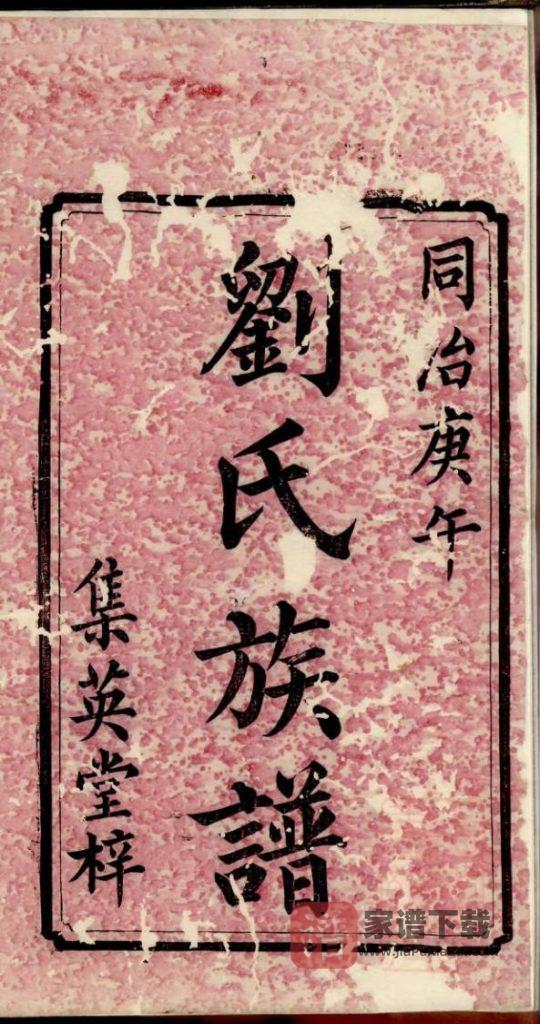 同治庚午
劉氏族譜
集英堂梓
家谱下载
www.jiapuxiazai.com